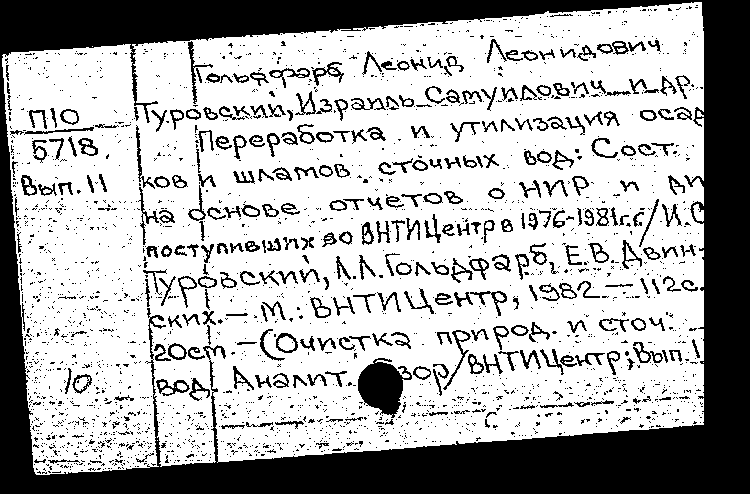 Гольдфарб, Леонид Леонидович
П10
5718.
Вып. 11
Туровский, Израиль Самуилович и др
Переработка и утилизация осад
ков и шламов сточных вод: Сост.
на основе отчетов о НИР и ди
поступивших во ВНТИЦентр в 1976-1981г.г./И.С
Туровский, Л.Л. Гольдфарб, Е.В. Двин-
ских. — М.: ВНТИЦентр, 1982 — 112с.
20см. — (Очистка природ. и сточ.
вод. Аналит. бзор/ВНТИЦентр; Вып. 1
10